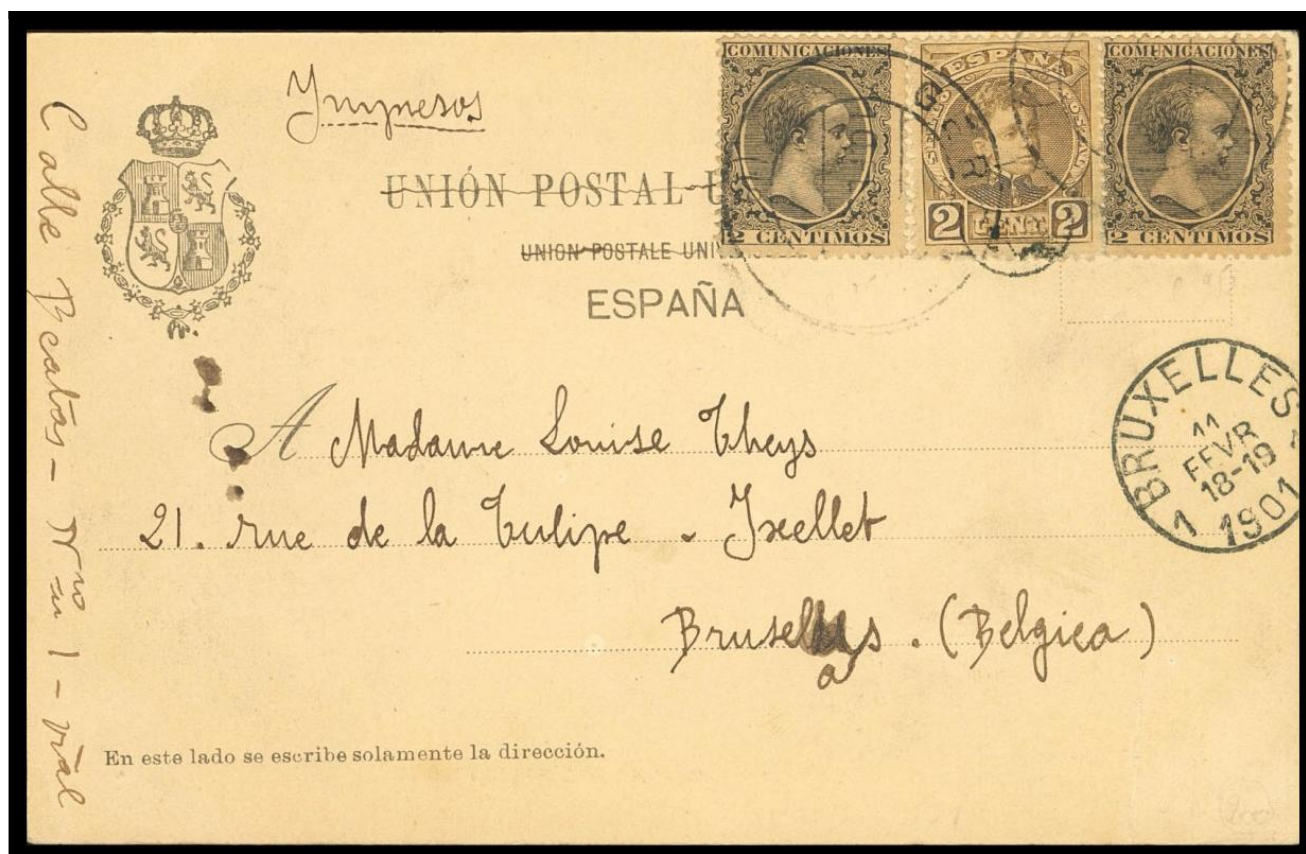 Impresos
UNIÓN POSTAL U
UNION POSTALE UNIV
ESPAÑA
COMUNICACIONES
2 CENTIMOS
ESPAÑA
2 CENT. 2
COMUNICACIONES
2 CENTIMOS
BRUXELLES
11
FEVR
18-19
1901
1 1
A Madame Louise Theys
21. rue de la Tulipe - Ixelles
(Belgica)
En este lado se escribe solamente la dirección.
Calle Beatas - 1 -